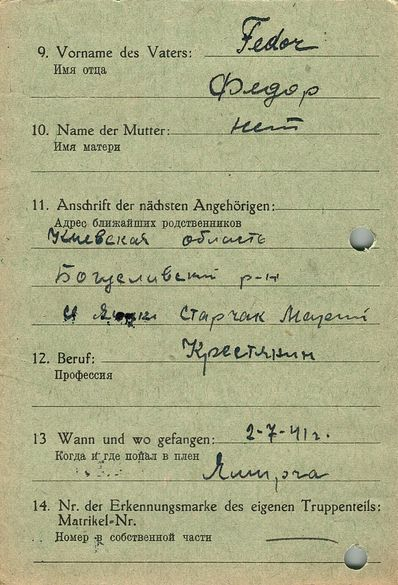 9. Vorname des Vaters: Fedor
Имя отца
Федор
10. Name der Mutter: нет
Имя матери
11. Anschrift der nächsten Angehörigen:
Адрес ближайших родственников
Киевская область
Богуславский р-н
Старчак
12. Beruf: Крестянин
Профессия
13 Wann und wo gefangen: 2-7-41г.
Когда и где попал в плен
14. Nr. der Erkennungsmarke des eigenen Truppenteils:
Matrikel-Nr.
Номер в собственной части